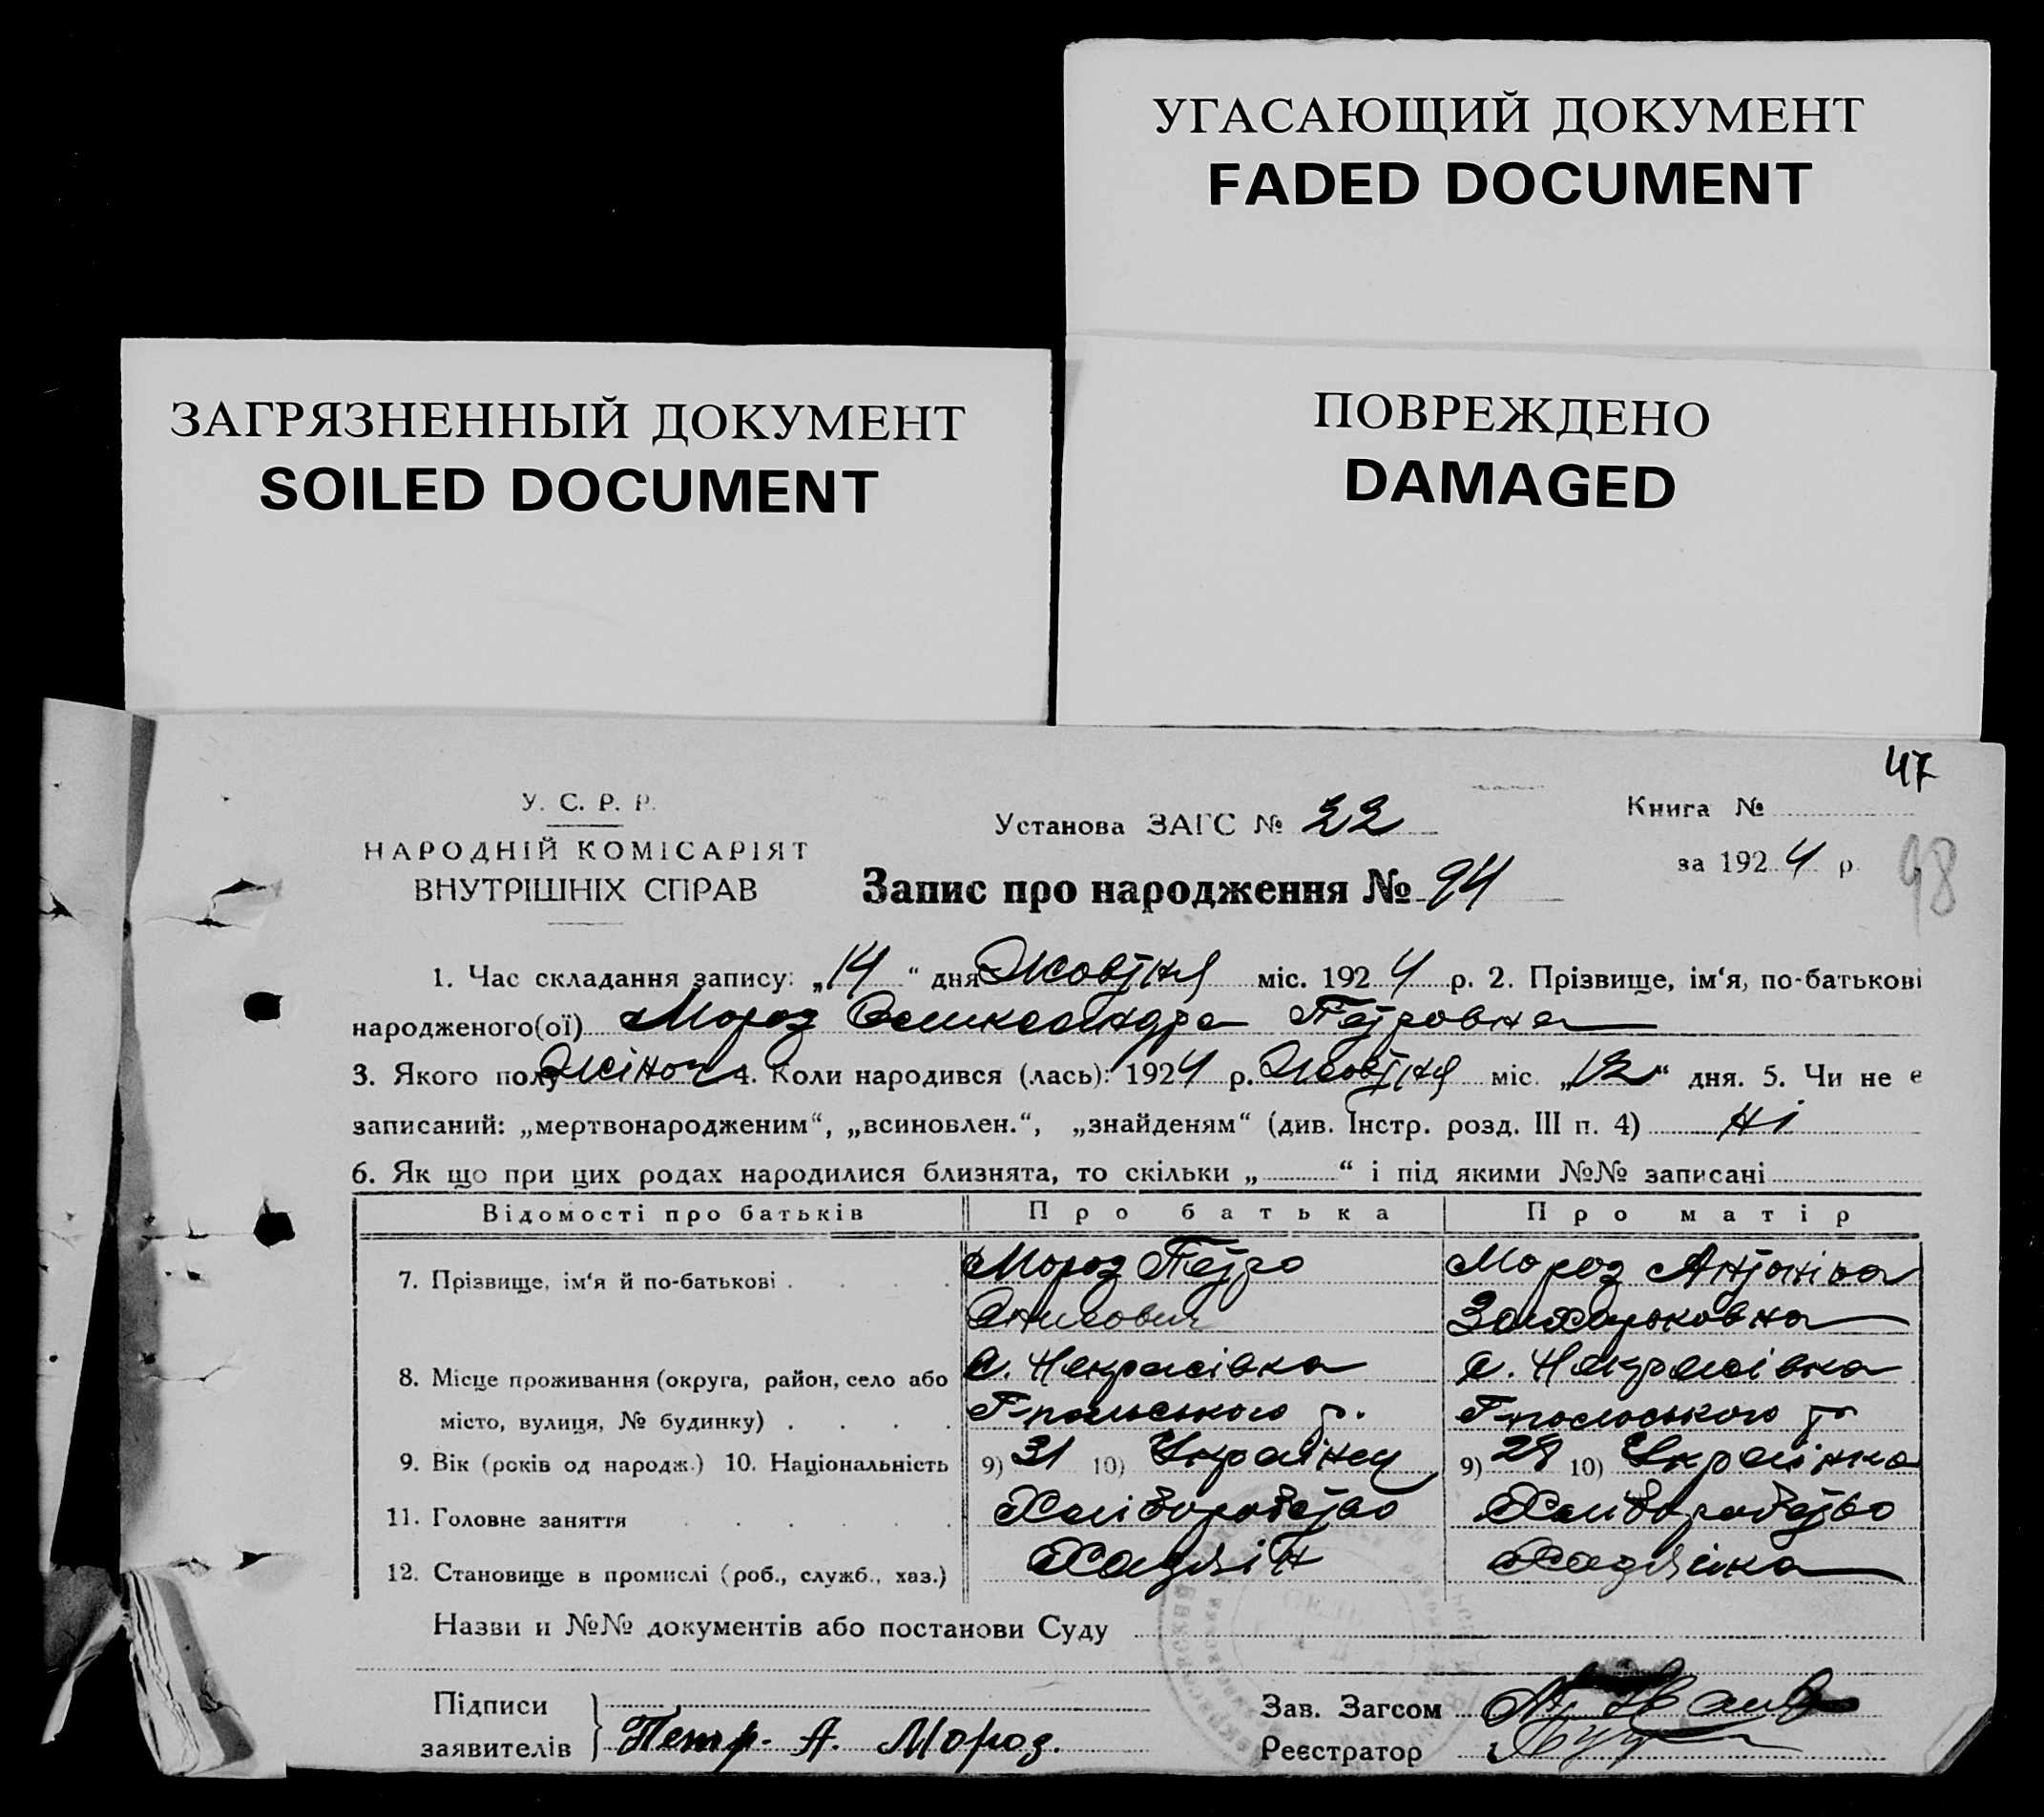 УГАСАЮЩИЙ ДОКУМЕНТ
FADED DOCUMENT
ЗАГРЯЗНЕННЫЙ ДОКУМЕНТ
SOILED DOCUMENT
ПОВРЕЖДЕНО
DAMAGED
47
У. С. Р. Р.
НАРОДНІЙ КОМІСАРІЯТ
ВНУТРІШНІХ СПРАВ
Установа ЗАГС № 22
Книга №
за 1924 р.
98
Запис про народження № 94
1. Час складання запису: „14“ дня Жовтня міс. 1924 р. 2. Прізвище, ім‘я, по-батькові
народженого(ої) Мороз Олександра Петровна
3. Якого полу жіноч 4. Коли народився (лась): 1924 р. Жовтня міс. „12“ дня. 5. Чи не є
записаний: „мертвонародженим“, „всиновлен.“, „знайденям“ (див. Інстр. розд. III п. 4) Ні
6. Як що при цих родах народилися близнята, то скільки „ “ і під якими №№ записані
Відомості про батьків Про батька Про матір
7. Прізвище, ім‘я й по-батькові Мороз Петро Мороз Антоніна
Захарьковна
8. Місце проживання (округа, район, село або с. Некрасівка с. Некрасівка
місто, вулиця, № будинку)
9. Вік (років од народж.) 10. Національність 9) 31 10) Українец 9) 28 10) Українка
11. Головне заняття Хліборобство Хліборобство
12. Становище в промислі (роб., служб., хаз.) Хазяін Хазяйка
Назви и №№ документів або постанови Суду
Підписи
заявителів Петр. А. Мороз.
Зав. Загсом
Реєстратор